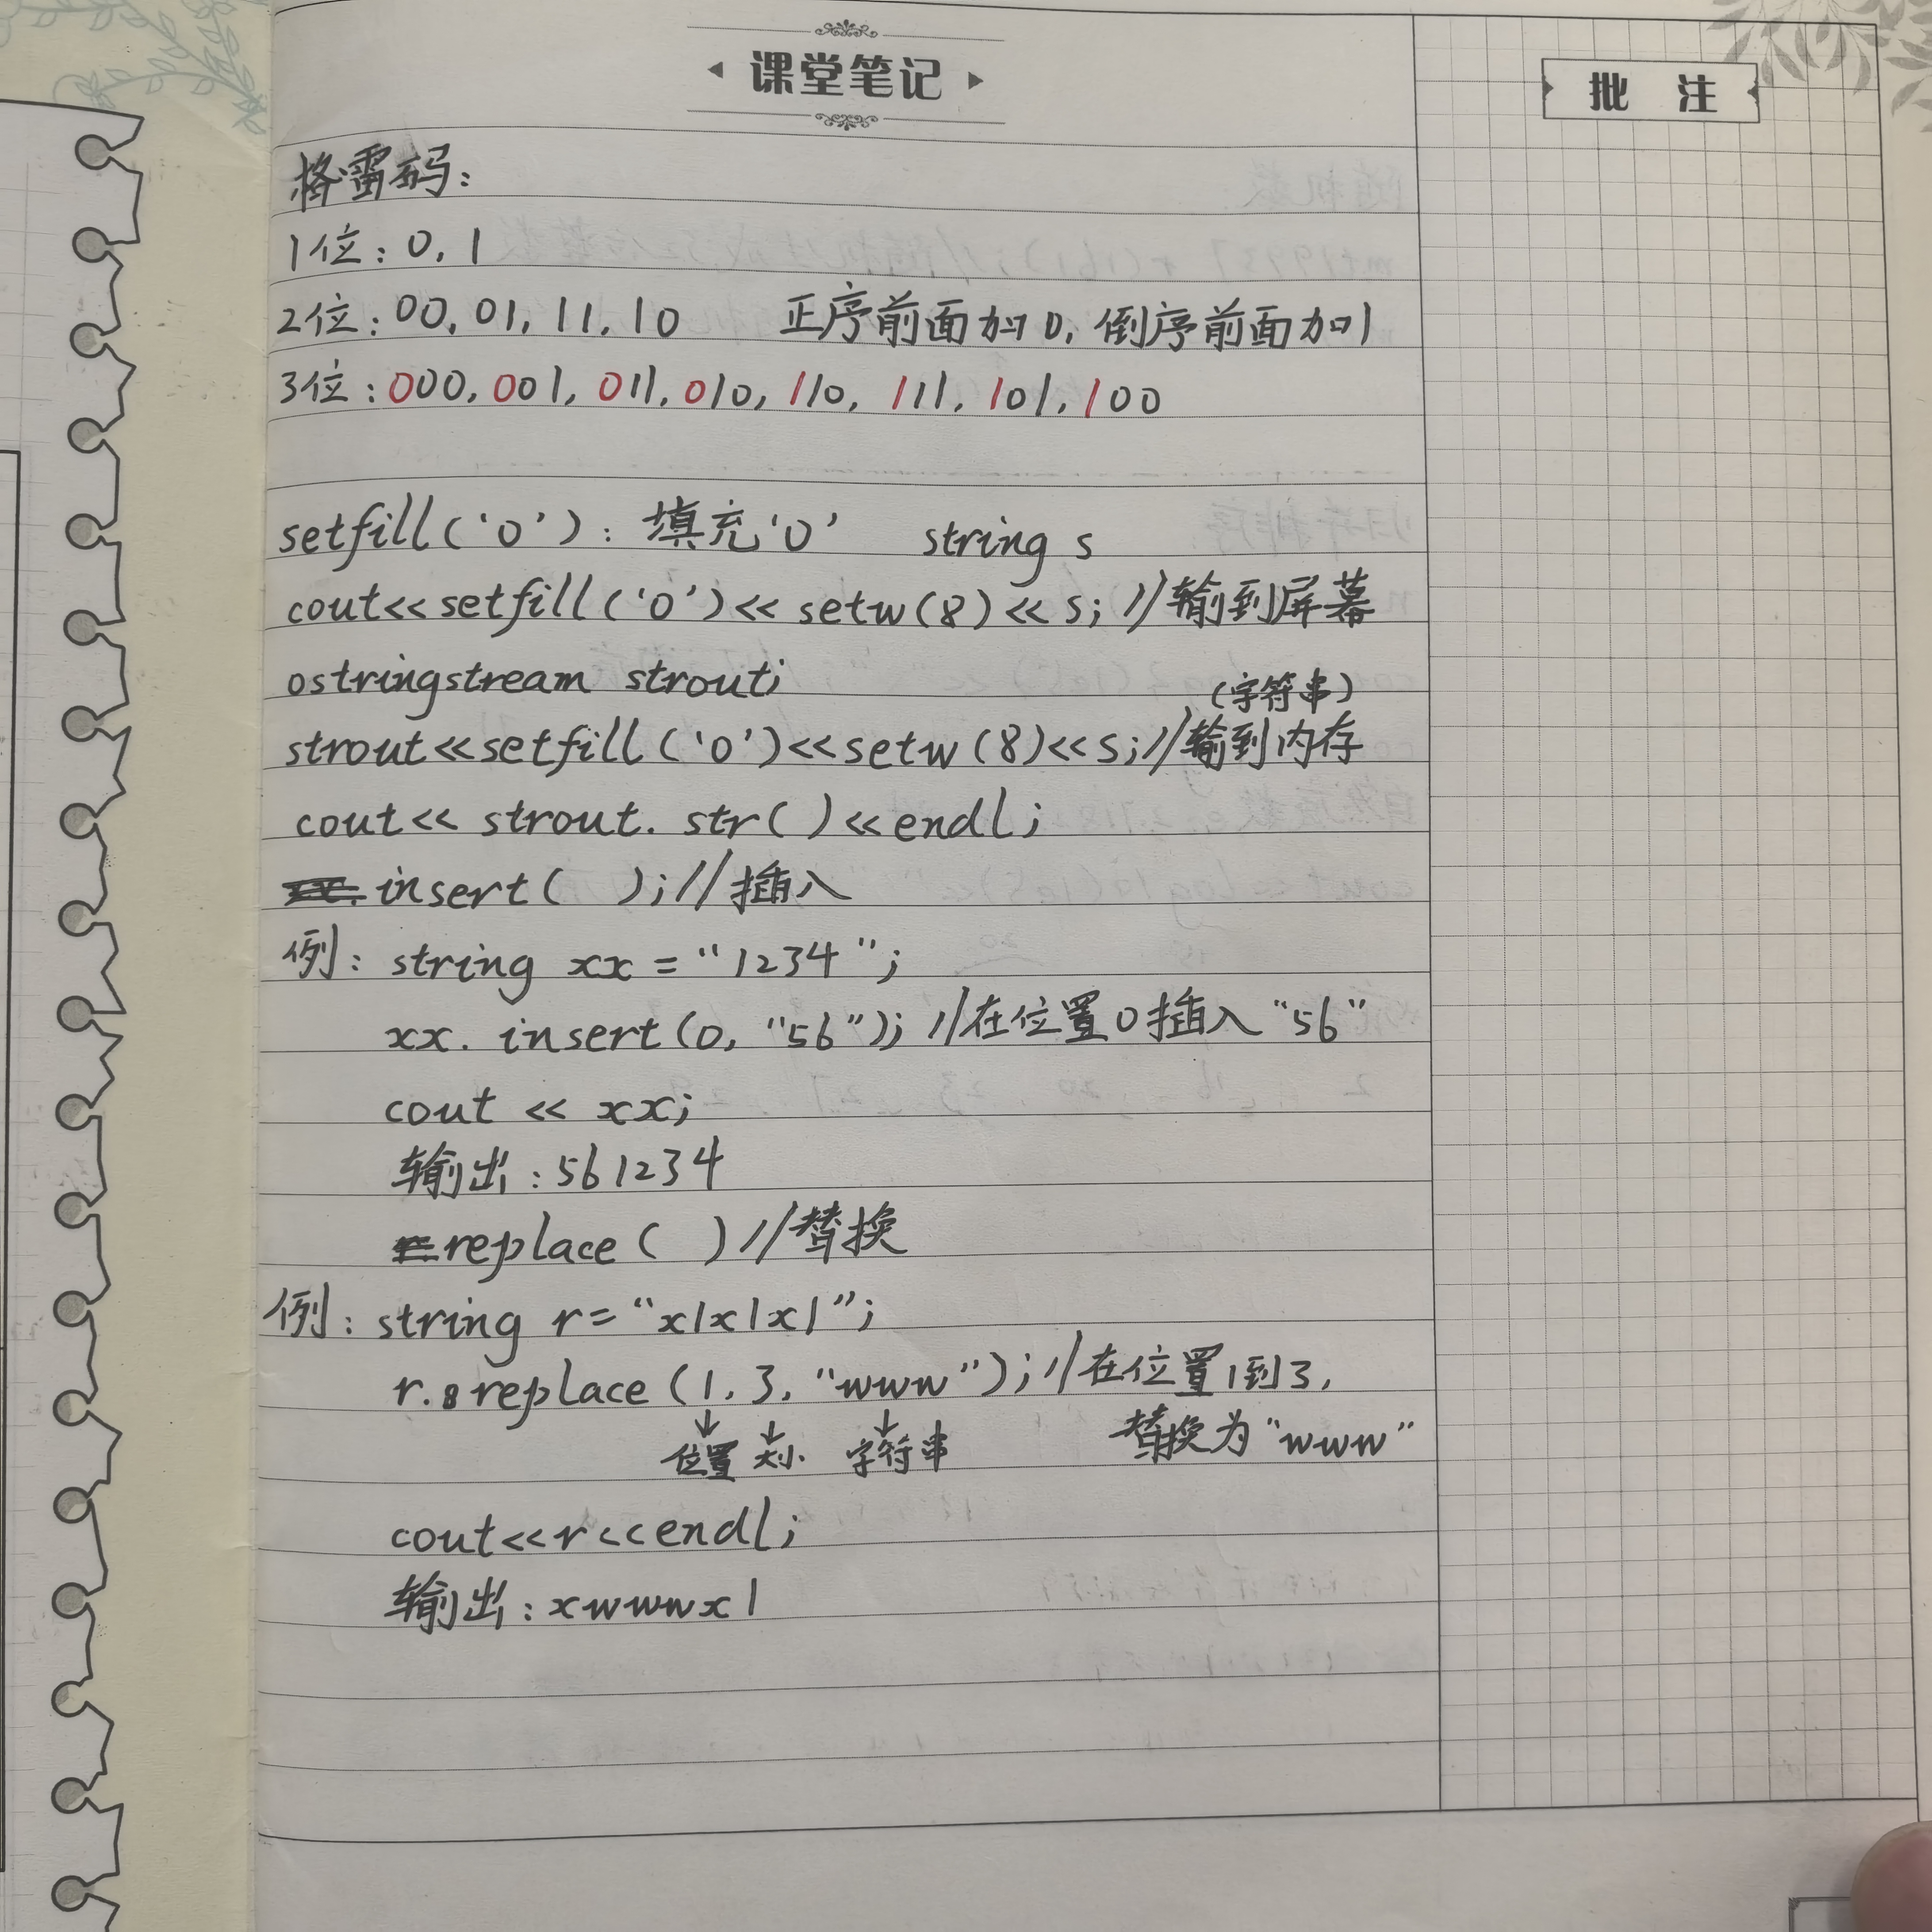 课堂笔记
批 注
格雷码：
1位：0, 1
2位：00, 01, 11, 10 正序前面加0, 倒序前面加1
3位：000, 001, 011, 010, 110, 111, 101, 100
setfill('0')：填充'0' string s
cout<<setfill('0')<<setw(8)<<s; //输到屏幕
ostringstream strout;
(字符串)
strout<<setfill('0')<<setw(8)<<s; //输到内存
cout<< strout. str( )<<endl;
insert( ); //插入
例：string xx = "1234";
xx. insert(0, "56"); //在位置0插入"56"
cout << xx;
输出：561234
replace( ) //替换
例：string r="x1x1x1";
r.replace(1, 3, "www"); //在位置1到3,
↓ ↓ ↓
位置 大小 字符串 替换为"www"
cout<<r<<endl;
输出：xwwwx1